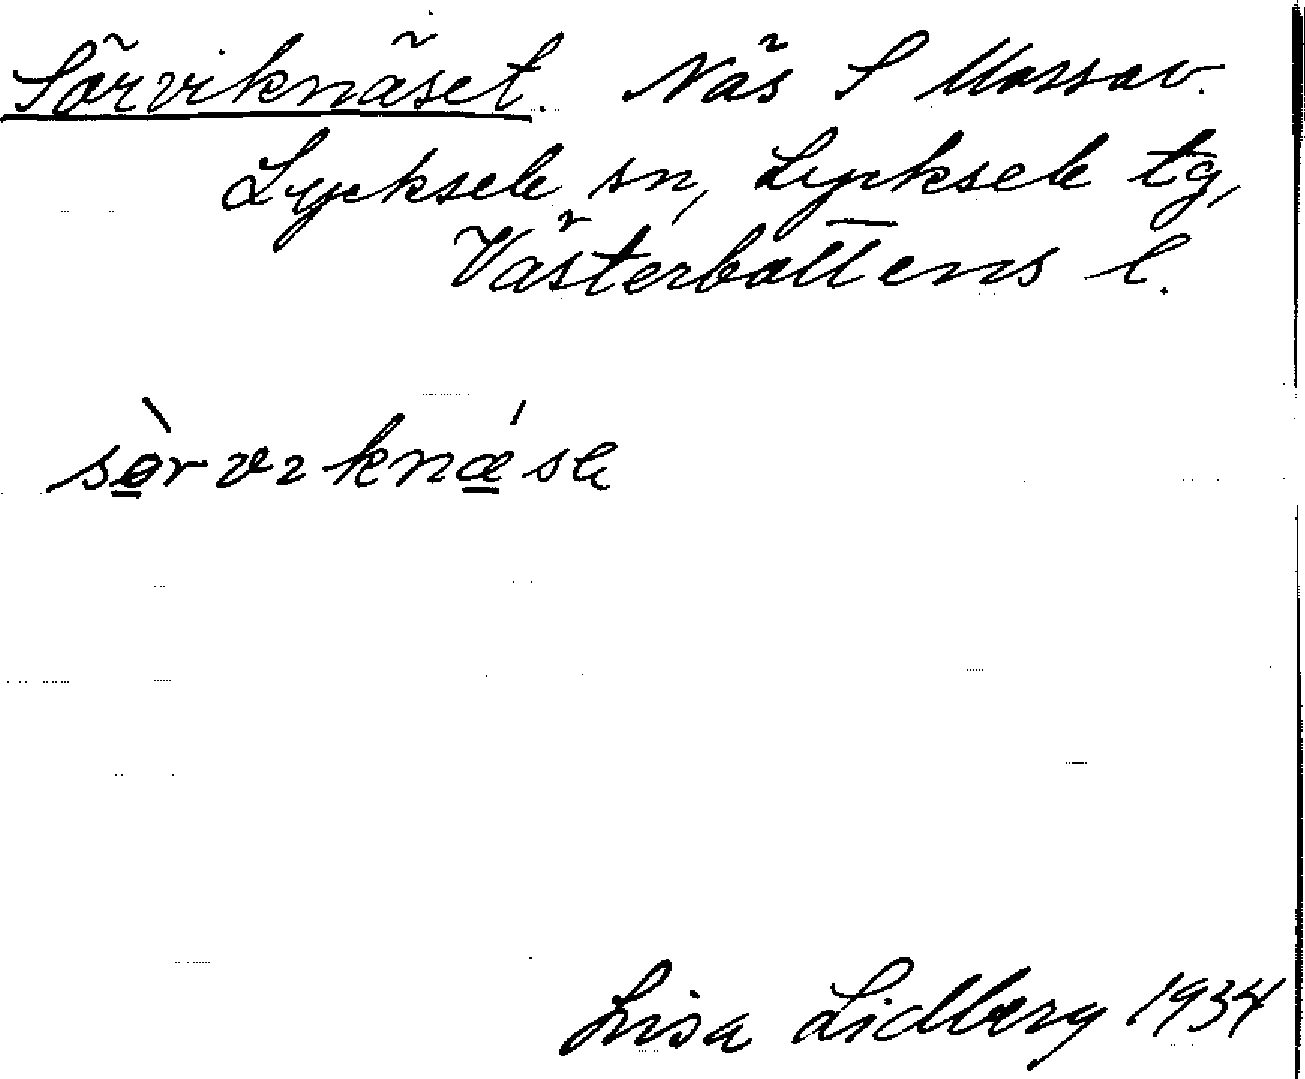 Sörviknäset. Näs S Mossav.
Lycksele sn, Lycksele tg,
Västerbottens l.
sə̀rvıknǽsə
Lisa Lidberg 1934